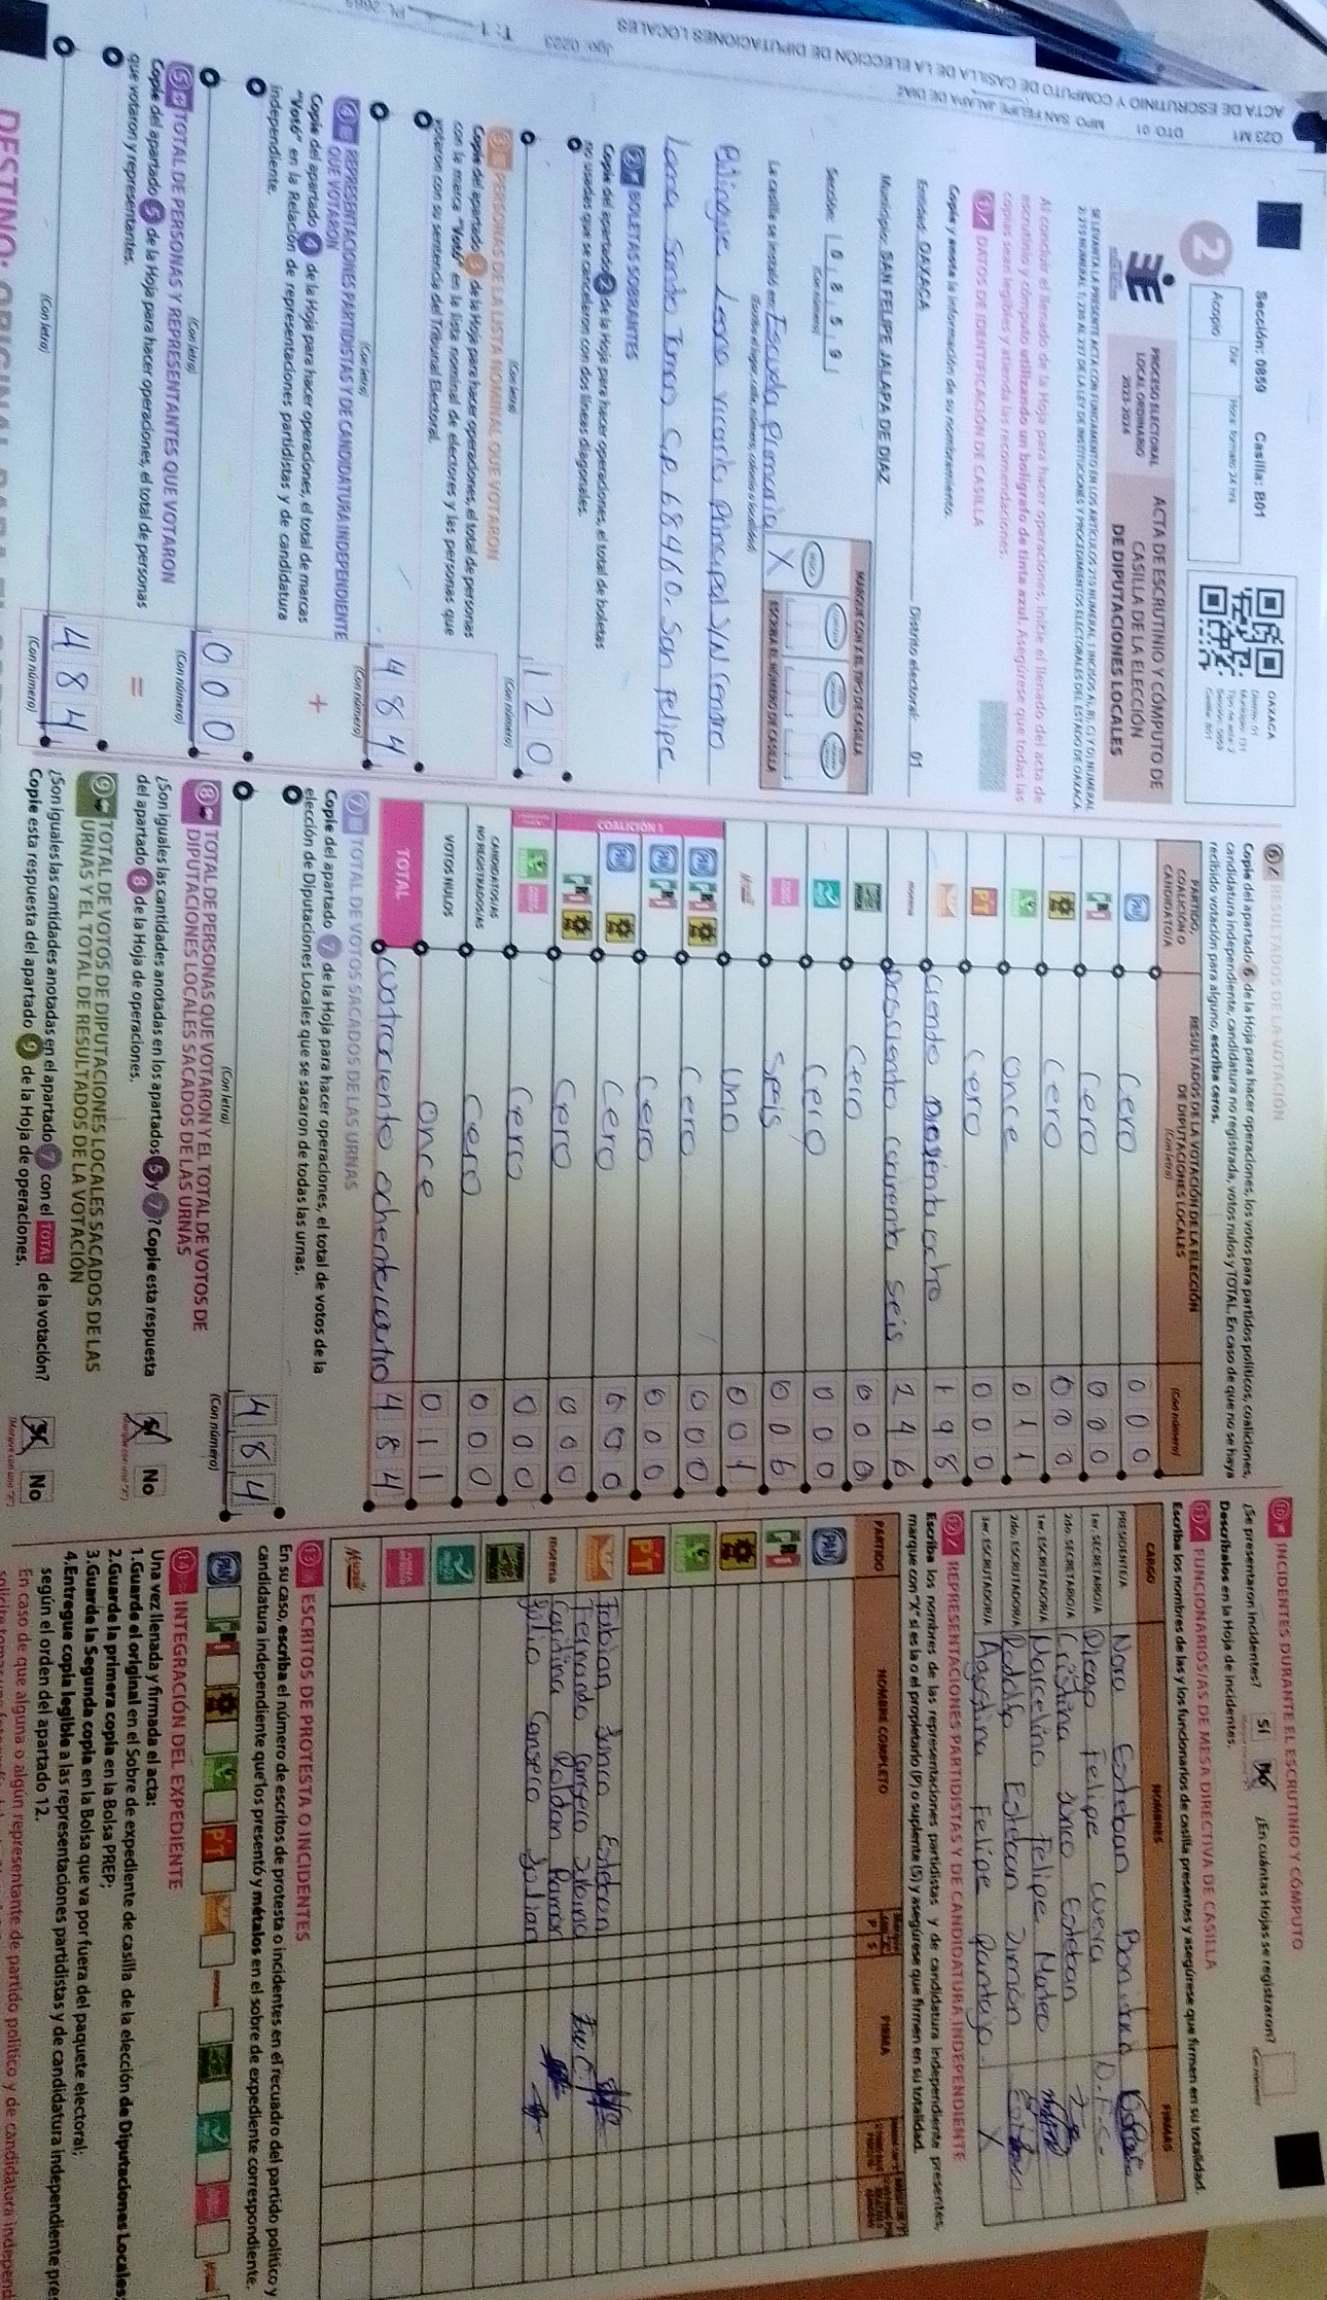 Sección: 0859 Casilla: B01
Día: Hora: formato 24 hrs
Acopio
2
OAXACA
PROCESO ELECTORAL
LOCAL ORDINARIO
2023-2024
ACTA DE ESCRUTINIO Y CÓMPUTO DE
CASILLA DE LA ELECCIÓN
DE DIPUTACIONES LOCALES
Al concluir el llenado de la Hoja para hacer operaciones, inicie el llenado del acta de
escrutinio y cómputo utilizando un bolígrafo de tinta azul. Asegúrese que todas las
copias sean legibles y atienda las recomendaciones.
1 DATOS DE IDENTIFICACIÓN DE CASILLA
Copie y anote la información de su nombramiento.
Entidad: OAXACA Distrito electoral: 01
Municipio: SAN FELIPE JALAPA DE DIAZ
Sección: 0 8 5 9
(Con número)
MARQUE CON X EL TIPO DE CASILLA
ESCRIBA EL NÚMERO DE CASILLA
X
La casilla se instaló en: Escuela Primaria
(Escriba el lugar, calle, número, colonia o localidad)
Leona Vicario, Principal S/N Centro
C.P. 68460. San Felipe
2 BOLETAS SOBRANTES
Copie del apartado 2 de la Hoja para hacer operaciones, el total de boletas
no usadas que se cancelaron con dos líneas diagonales.
120
(Con letra) (Con número)
3 PERSONAS DE LA LISTA NOMINAL QUE VOTARON
Copie del apartado 3 de la Hoja para hacer operaciones, el total de personas
con la marca "Votó" en la lista nominal de electores y las personas que
votaron con su sentencia del Tribunal Electoral.
484
(Con letra) (Con número)
4 REPRESENTACIONES PARTIDISTAS Y DE CANDIDATURA INDEPENDIENTE
QUE VOTARON
Copie del apartado 4 de la Hoja para hacer operaciones, el total de marcas
"Votó" en la Relación de representaciones partidistas y de candidatura
independiente.
+
000
(Con letra) (Con número)
5 TOTAL DE PERSONAS Y REPRESENTANTES QUE VOTARON
Copie del apartado 5 de la Hoja para hacer operaciones, el total de personas
que votaron y representantes.
=
484
(Con letra) (Con número)
6 RESULTADOS DE LA VOTACIÓN
Copie del apartado 6 de la Hoja para hacer operaciones, los votos para partidos políticos, coaliciones,
candidatura independiente, candidatura no registrada, votos nulos y TOTAL. En caso de que no se haya
recibido votación para alguno, escriba ceros.
PARTIDO, COALICIÓN O CANDIDATO/A
RESULTADOS DE LA VOTACIÓN DE LA ELECCIÓN
DE DIPUTACIONES LOCALES
(Con letra) (Con número)
PAN Cero 000
PRI Cero 000
PRD Cero 000
VERDE Once 011
PT Cero 000
198
morena Doscientos cuarenta seis 246
Cero 000
Cero 000
Seis 006
Mujer Uno 001
COALICIÓN 1
PAN PRI PRD Cero 000
PAN PRI Cero 000
PAN PRD Cero 000
PRI PRD Cero 000
Cero 000
CANDIDATOS/AS NO REGISTRADOS/AS Cero 000
VOTOS NULOS Once 011
TOTAL Cuatrociento ochenta cuatro 484
7 TOTAL DE VOTOS SACADOS DE LAS URNAS
Copie del apartado 7 de la Hoja para hacer operaciones, el total de votos de la
elección de Diputaciones Locales que se sacaron de todas las urnas.
484
(Con letra) (Con número)
8 TOTAL DE PERSONAS QUE VOTARON Y EL TOTAL DE VOTOS DE
DIPUTACIONES LOCALES SACADOS DE LAS URNAS
¿Son iguales las cantidades anotadas en los apartados 5 y 7? Copie esta respuesta
del apartado 8 de la Hoja de operaciones.
Sí No
9 TOTAL DE VOTOS DE DIPUTACIONES LOCALES SACADOS DE LAS
URNAS Y EL TOTAL DE RESULTADOS DE LA VOTACIÓN
¿Son iguales las cantidades anotadas en el apartado 7 con el TOTAL de la votación?
Copie esta respuesta del apartado 9 de la Hoja de operaciones.
Sí No
10 INCIDENTES DURANTE EL ESCRUTINIO Y CÓMPUTO
¿Se presentaron incidentes? Sí No ¿En cuántas Hojas se registraron?
Descríbalos en la Hoja de incidentes.
11 FUNCIONARIOS/AS DE MESA DIRECTIVA DE CASILLA
Escriba los nombres de las y los funcionarios de casilla presentes y asegúrese que firmen en su totalidad.
CARGO NOMBRES FIRMAS
PRESIDENTE/A Nora Esteban
1er. SECRETARIO/A Diego Felipe Cueva D.F.C.
2do. SECRETARIO/A Cristina Junco Esteban
1er. ESCRUTADOR/A Marcelino Felipe Mateo
2do. ESCRUTADOR/A Rodolfo Esteban Simón
3er. ESCRUTADOR/A Agostina Felipe X
12 REPRESENTACIONES PARTIDISTAS Y DE CANDIDATURA INDEPENDIENTE
Escriba los nombres de las representaciones partidistas y de candidatura independiente presentes,
marque con "X" si es la o el propietario (P) o suplente (S) y asegúrese que firmen en su totalidad.
PARTIDO NOMBRE COMPLETO P S FIRMA
PAN
PRI
PRD
VERDE
PT
Fabian Junco Esteban
Fernando Canseco
morena Carolina Roldan
Julio Canseco Julian
Mujer
13 ESCRITOS DE PROTESTA O INCIDENTES
En su caso, escriba el número de escritos de protesta o incidentes en el recuadro del partido político y
candidatura independiente que los presentó y métalos en el sobre de expediente correspondiente.
PAN PRI PRD VERDE PT
14 INTEGRACIÓN DEL EXPEDIENTE
Una vez llenada y firmada el acta:
1.Guarde el original en el Sobre de expediente de casilla de la elección de Diputaciones Locales;
2.Guarde la primera copia en la Bolsa PREP;
3.Guarde la Segunda copia en la Bolsa que va por fuera del paquete electoral;
4.Entregue copia legible a las representaciones partidistas y de candidatura independiente
según el orden del apartado 12.
En caso de que alguna o algún representante de partido político y de candidatura
ACTA DE ESCRUTINIO Y CÓMPUTO DE CASILLA DE LA ELECCIÓN DE DIPUTACIONES LOCALES
023 M1 DTO. 01 MPO. SAN FELIPE JALAPA DE DIAZ
Jgo. 0223 T: 1